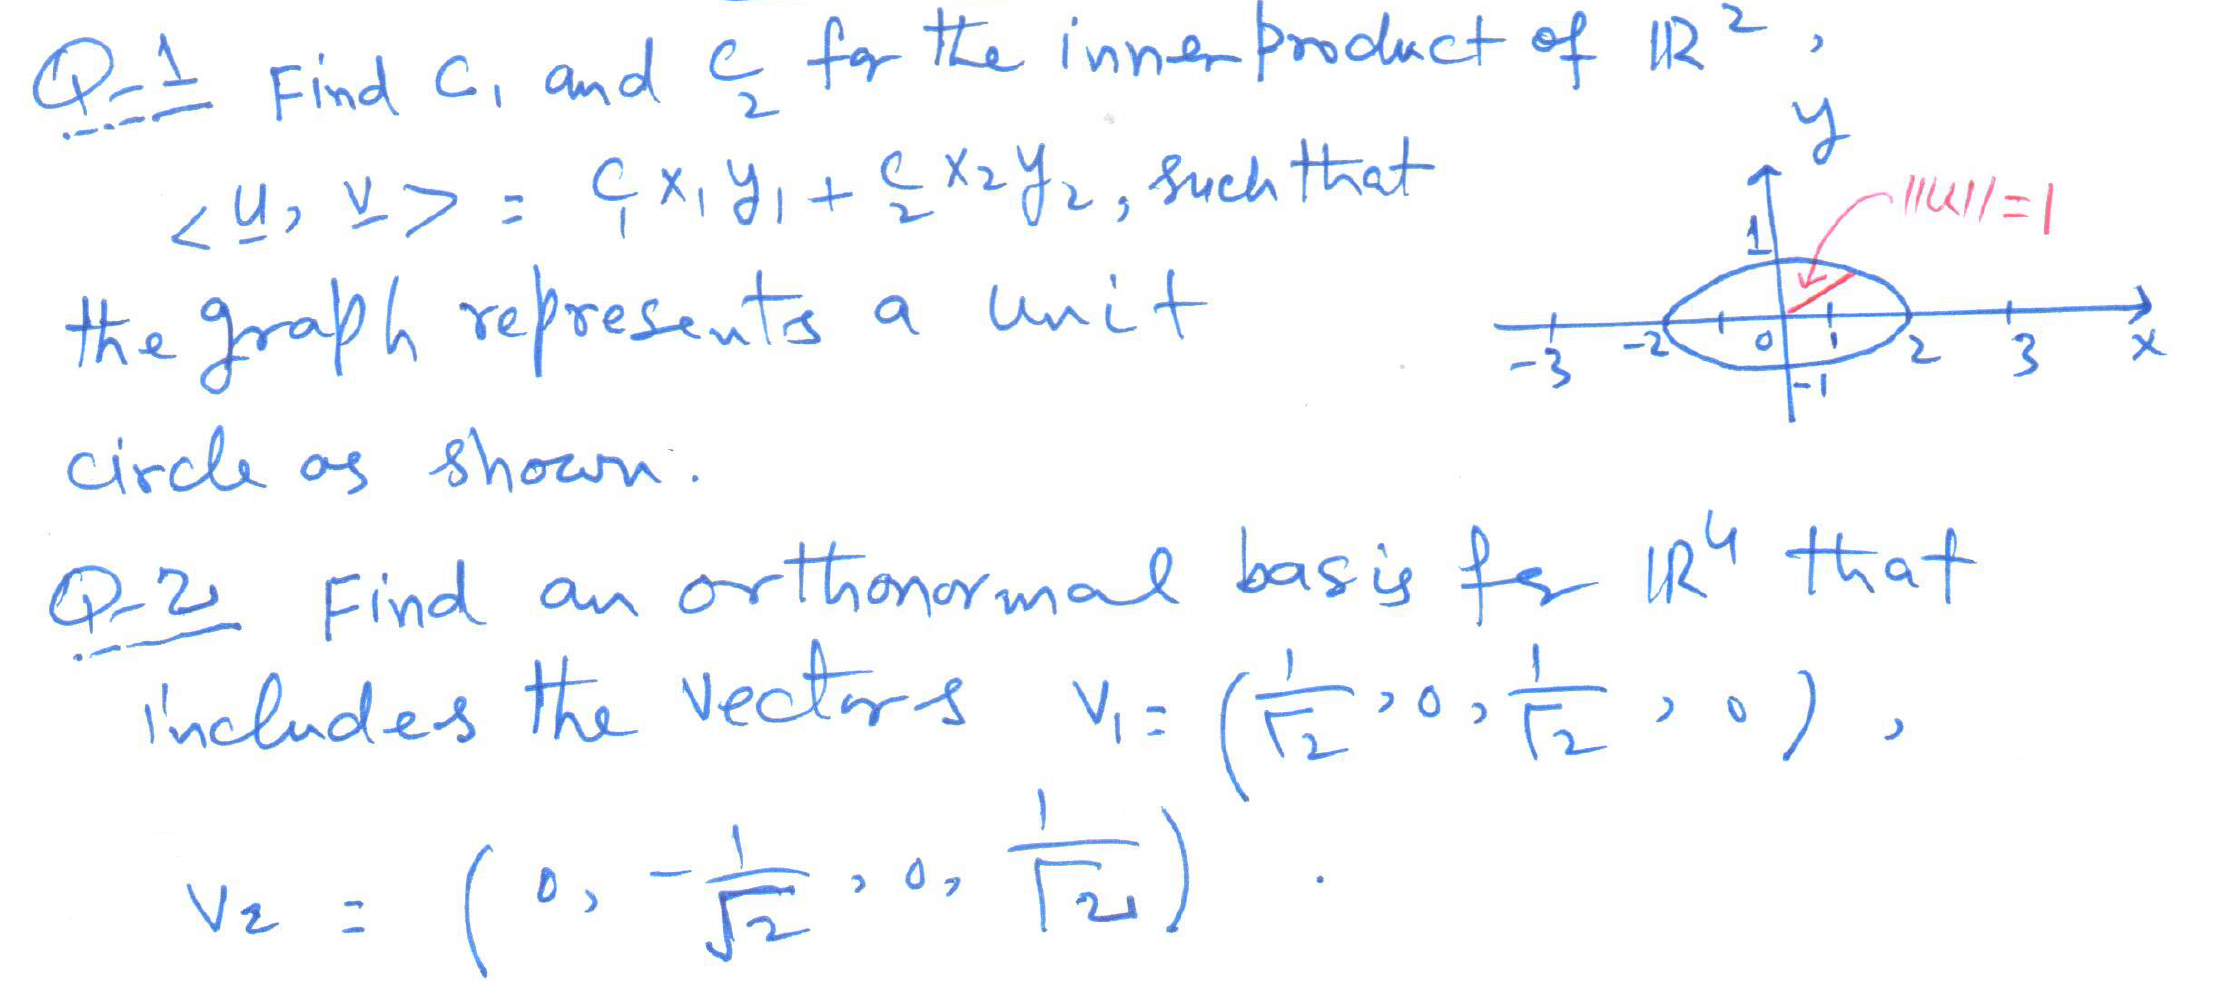 Q-1 Find C₁ and C₂ for the inner product of ℝ²,
<u, v> = C₁ x₁ y₁ + C₂ x₂ y₂, such that
the graph represents a unit
circle as shown.
y
||u|| = 1
1
-3 -2 0 1 2 3 x
-1
Q-2 Find an orthonormal basis for ℝ⁴ that
includes the vectors v₁ = (1/√2, 0, 1/√2, 0),
v₂ = (0, -1/√2, 0, 1/√2).